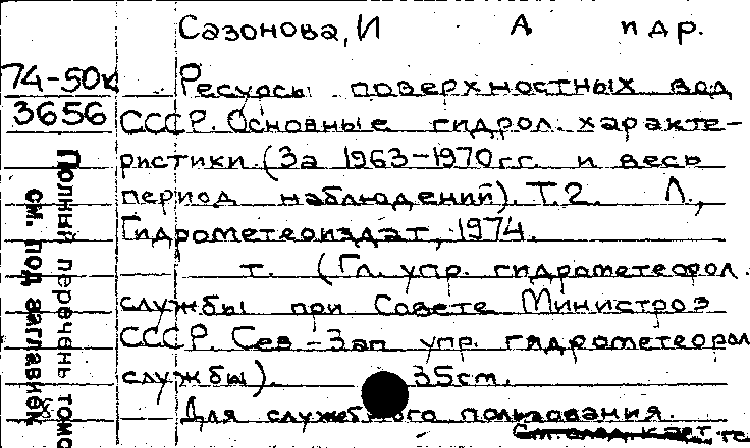 Сазонова, И А и др.
74-50к
3656
Ресурсы поверхностных вод
СССР. Основные гидрол. характе-
ристики. (За 1963-1970 гг. и весь
период наблюдений). Т. 2. Л.,
Гидрометеоиздат, 1974.
т. (Гл. упр. гидрометеорол.
службы при Совете Министров
СССР. Сев-Зап упр. гидрометеорол
службы). 35см.
Для служебного пользования.
Полный перечень томо
см. под заглавием